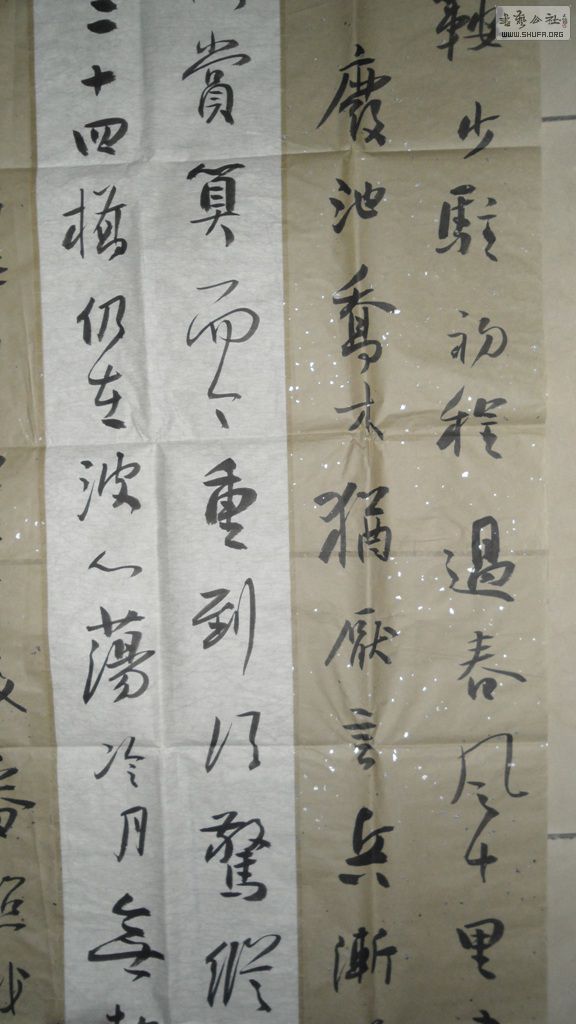 鞍少駐初程過春風十里
廢池喬木猶厭言兵漸
賞算而今重到須驚縱
二十四橋仍在波心蕩冷月無
書藝公社
WWW.SHUFA.ORG